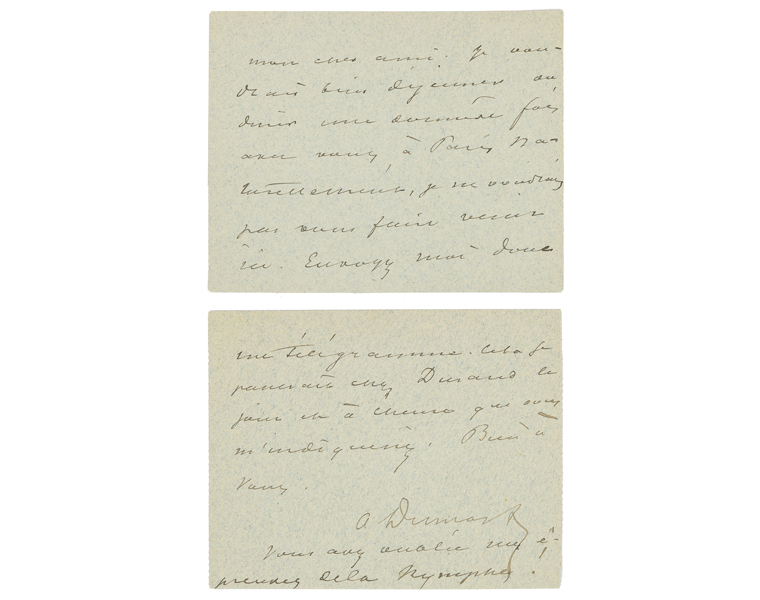 mon cher ami. Je vou-
drais bien déjeuner ou
diner une dernière fois
avec vous, à Paris Na-
turellement, je ne voudrais
pas vous faire venir
ici. Envoyez moi donc
un télégramme. Cela se
passerait chez Durand le
jour et à l'heure que vous
m'indiquerez. Bien à
vous.
A Dumas f
Vous avez oublié mes é-
preuves de la Nymphe!